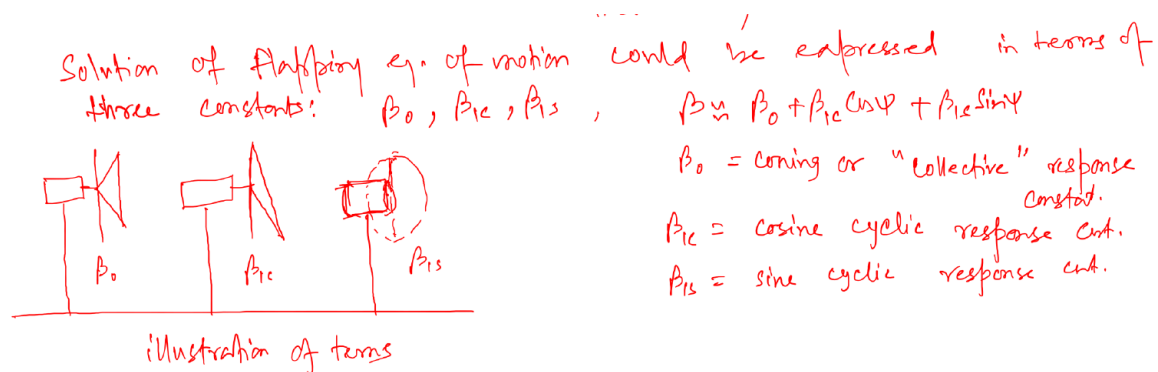 Solution of flapping eq. of motion could be expressed in terms of
three constants: β₀, β₁c, β₁s, β ≈ β₀ + β₁c Cosψ + β₁s Sinψ
β₀ = coning or "collective" response
constant.
β₁c = cosine cyclic response cnt.
β₁s = sine cyclic response cnt.
β₀ β₁c β₁s
illustration of terms